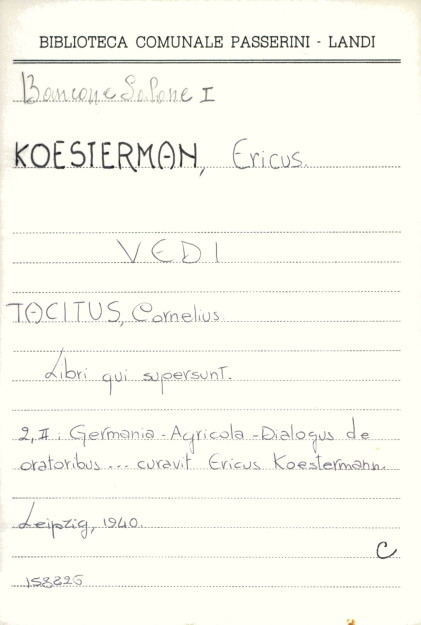 BIBLIOTECA COMUNALE PASSERINI - LANDI
Bancone Salone I
KOESTERMAN, Ericus.
VEDI
TACITUS, Cornelius.
Libri qui supersunt.
2, II: Germania - Agricola - Dialogus de
oratoribus ... curavit Ericus Koestermann.
Leipzig, 1940.
C